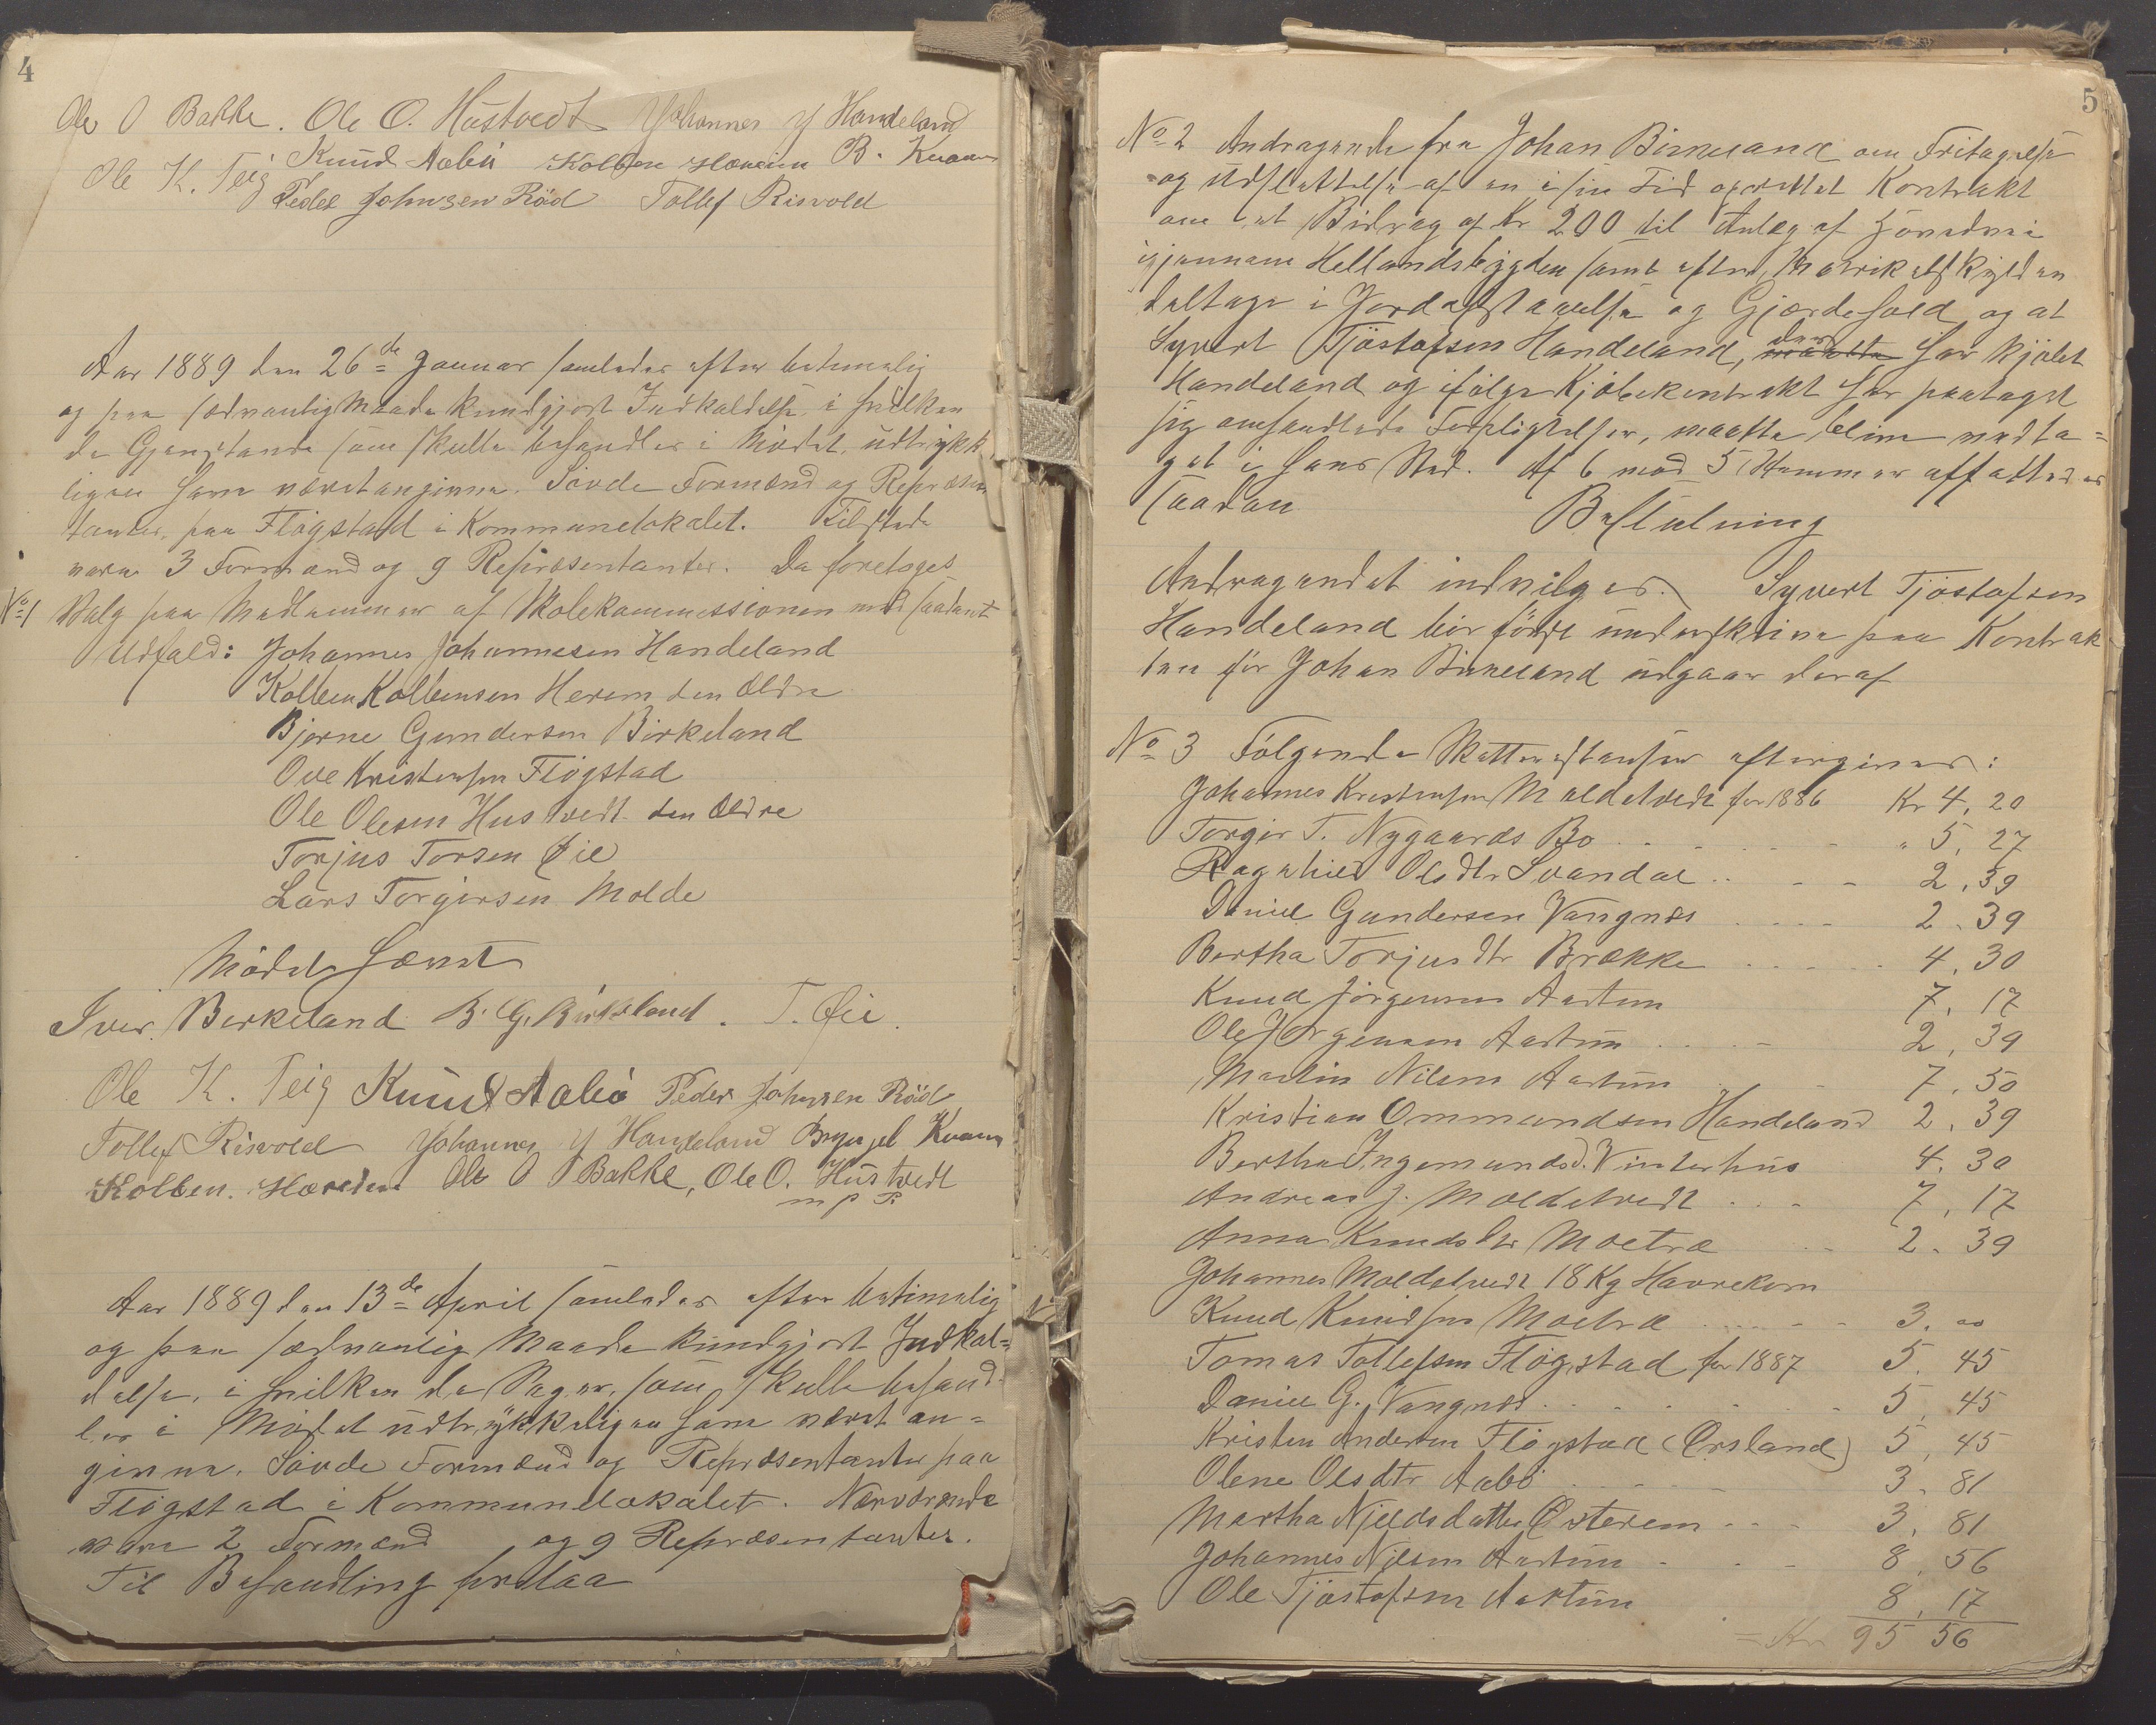 4
Ole O Bakke. Ole O. Hustvedt Johannes J Handeland
Ole K. Teig Knud Aabø Kolben Hæreim B. Kvam
Peder Johnsen Röd Tollef Risvold
Aar 1889 den 26de Januar samledes efter betimelig
og paa sedvanlig Maade kundgjort Indkaldelse i hvilken
de Gjenstande som skulle behandles i Mødet, udtrykk
ligen have været angivne. Søvde Formænd og Repræsen
tanter, paa Fløgstad i Kommunelokalet. Tilstede
vare 3 Formænd og 9 Repræsentanter. Da foretoges
No 1 Valg paa Medlemmer af Skolekommissionen med saadant
Udfald: Johannes Johannesen Handeland
Kolben Kolbensen Hereim den ældre
Bjerne Gundersen Birkeland
Ove Kristensen Fløgstad
Ole Olesen Hustvedt den ældre
Torjus Torsen Øie
Lars Torgersen Molde
Mødet hævet
Iver Berkeland B. G. Birkeland. T. Øie.
Ole K. Teig Knud Aabø Peder Johnsen Röd
Tollef Risvold Johannes J Handeland Brynjel Kvam
Kolben. Hæreim Ole O Bakke, Ole O. Hustvedt
m p P.
Aar 1889 den 13de April samledes efter betimelig
og paa sedvanlig Maade kundgjort Indkal=
delse, i hvilken de Sager, som skulle behand-
les i Mødet udtrykkeligen have været an=
givne. Søvde Formænd og Repræsentanter paa
Fløgstad i Kommunelokalet. Nærværende
vare 2 Formænd og 9 Repræsentanter.
Til Behandling forelaa
5
No 2 Andragende fra Johan Birkeland om Fritagelse
og Udslettelse af en i sin Tid oprettet Kontrakt
om et Bidrag af Kr 200 til Anlæg af Hovedvei
igjennem Hellandsbygden samt efter Matrikelskylden
deltage i Jordafstaaelse og Gjærdehold og at
Syvert Tjøstofsen Handeland, maatte der har kjøbt
Handeland og ifølge Kjøbekontrakt har paataget
sig omhandlede Forpligtelser, maatte blive modta=
get i hans Sted. Af 6 mod 5 Stemmer affattedes
saadan
Beslutning
Andragendet indvilges. Syvert Tjøstofsen
Handeland bør først underskrive paa Kontrak
ten før Johan Birkeland udgaar deraf
No 3 Følgende Skatterestanser eftergives:
Johannes Kristensen Moldetvedt for 1886 Kr 4, 20
Torger T. Nygaards Bo " 5, 27
Ragnhild Olsdtr Svandal 2, 39
Daniel Gundersen Vangnæs 2. 39
Bertha Torjusdtr Brække 4, 30
Knud Jørgensen Aartun 7, 17
Ole Jørgensen Aartun 2, 39
Martin Nilsen Aartun 7, 50
Kristian Ommundsen Handeland 2, 39
Bertha Ingemundsd. Vinterhus 4. 30
Andreas J. Moldetvedt 7, 17
Anna Knudsdtr Moetræ 2. 39
Johannes Moldetvedt 18 Kg Havrekorn
Knud Knudsen Moetræ 3. 00
Tomas Tollefsen Fløgstad for 1887 5, 45
Daniel G. Vangnæs 5, 45
Kristen Andersen Fløgstad (Ørsland) 5, 45
Olene Olsdtr Aabø 3. 81
Martha Njeldsdatter Østerem 3, 81
Johannes Nilsen Aartun 8, 56
Ole Tjøstofsen Aartun 8, 17
= Kr 95 56